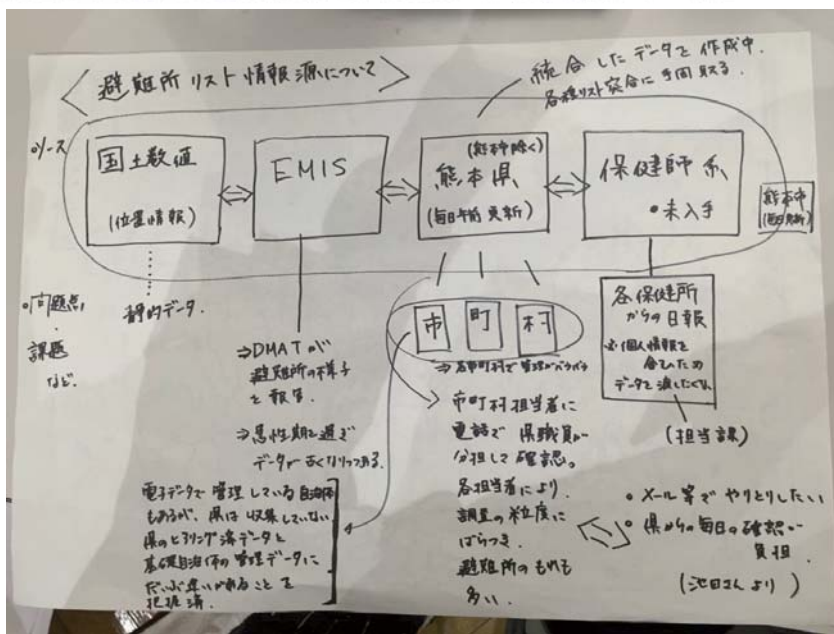 <避難所リスト情報源について>
統合したデータを作成中.
各種リスト突合に手間取る.
・ソース
国土数値
(位置情報)
EMIS
(熊本市除く)
熊本県
(毎日午前更新)
保健師系
・未入手
熊本市
(毎日更新)
・問題点,
・課題
など.
静的データ.
⇒DMATが
避難所の様子
を報告.
⇒急性期を過ぎ
データが古くなりつつある.
市 町 村
⇒各市町村で管理がバラバラ
市町村担当者に
電話で県職員が
分担して確認。
各担当者により.
調査の粒度に
ばらつき.
避難所のもれも
多い.
各保健所
からの日報
※個人情報を
含むため
データを渡したくない
(担当課)
・メール等でやりとりしたい
・県からの毎日の確認が
負担.
(池田さんより)
電子データで管理している自治体
もあるが、県は収集していない
県のヒアリング済データと
基礎自治体の管理データに
だいぶ違いがあることを
把握済.